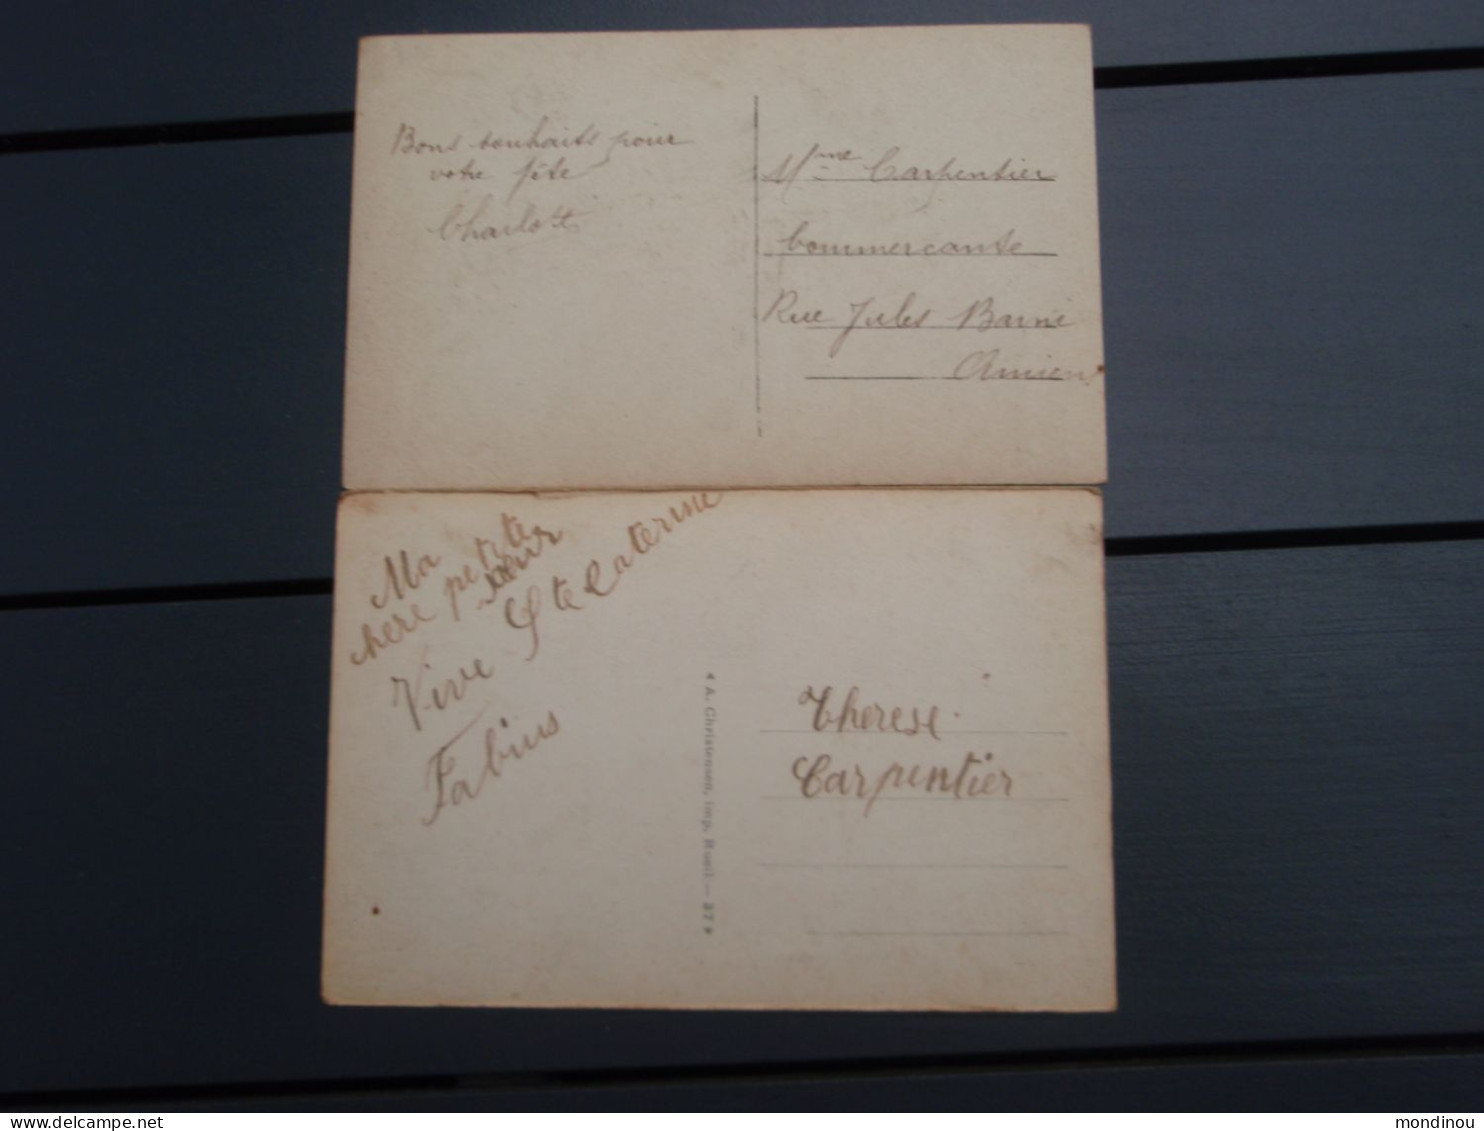 Bons souhaits pour
votre fête
Charlotte
Mme Carpentier
Commercante
Rue Jules Barni
Amiens
Ma
chere petite
Vive Ste Caterine
Fabius
A. Christensen, imp. Rueil — 37
Therese
Carpentier
mondinou